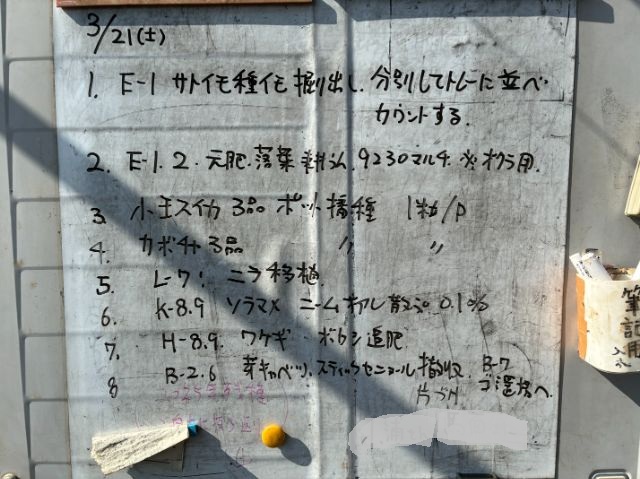 3/21(土)
1. E-1 サトイモ種イモ掘り出し、分別してトレーに並べ
カウントする。
2. E-1.2. 元肥・落葉耕込ム、9230マルチ ※オクラ用
3. 小玉スイカ 3品 ポット播種 1粒/P
4. カボチャ3品 〃 〃
5. L-7: ニラ移植
6. K-8.9 ソラマメ ニーム 散 0.1%
7. H-8.9. ワケギ ボカシ追肥
8 B-2.6 芽キャベツ、スティックセニョール撤収、B-7
片づけ
筆記用